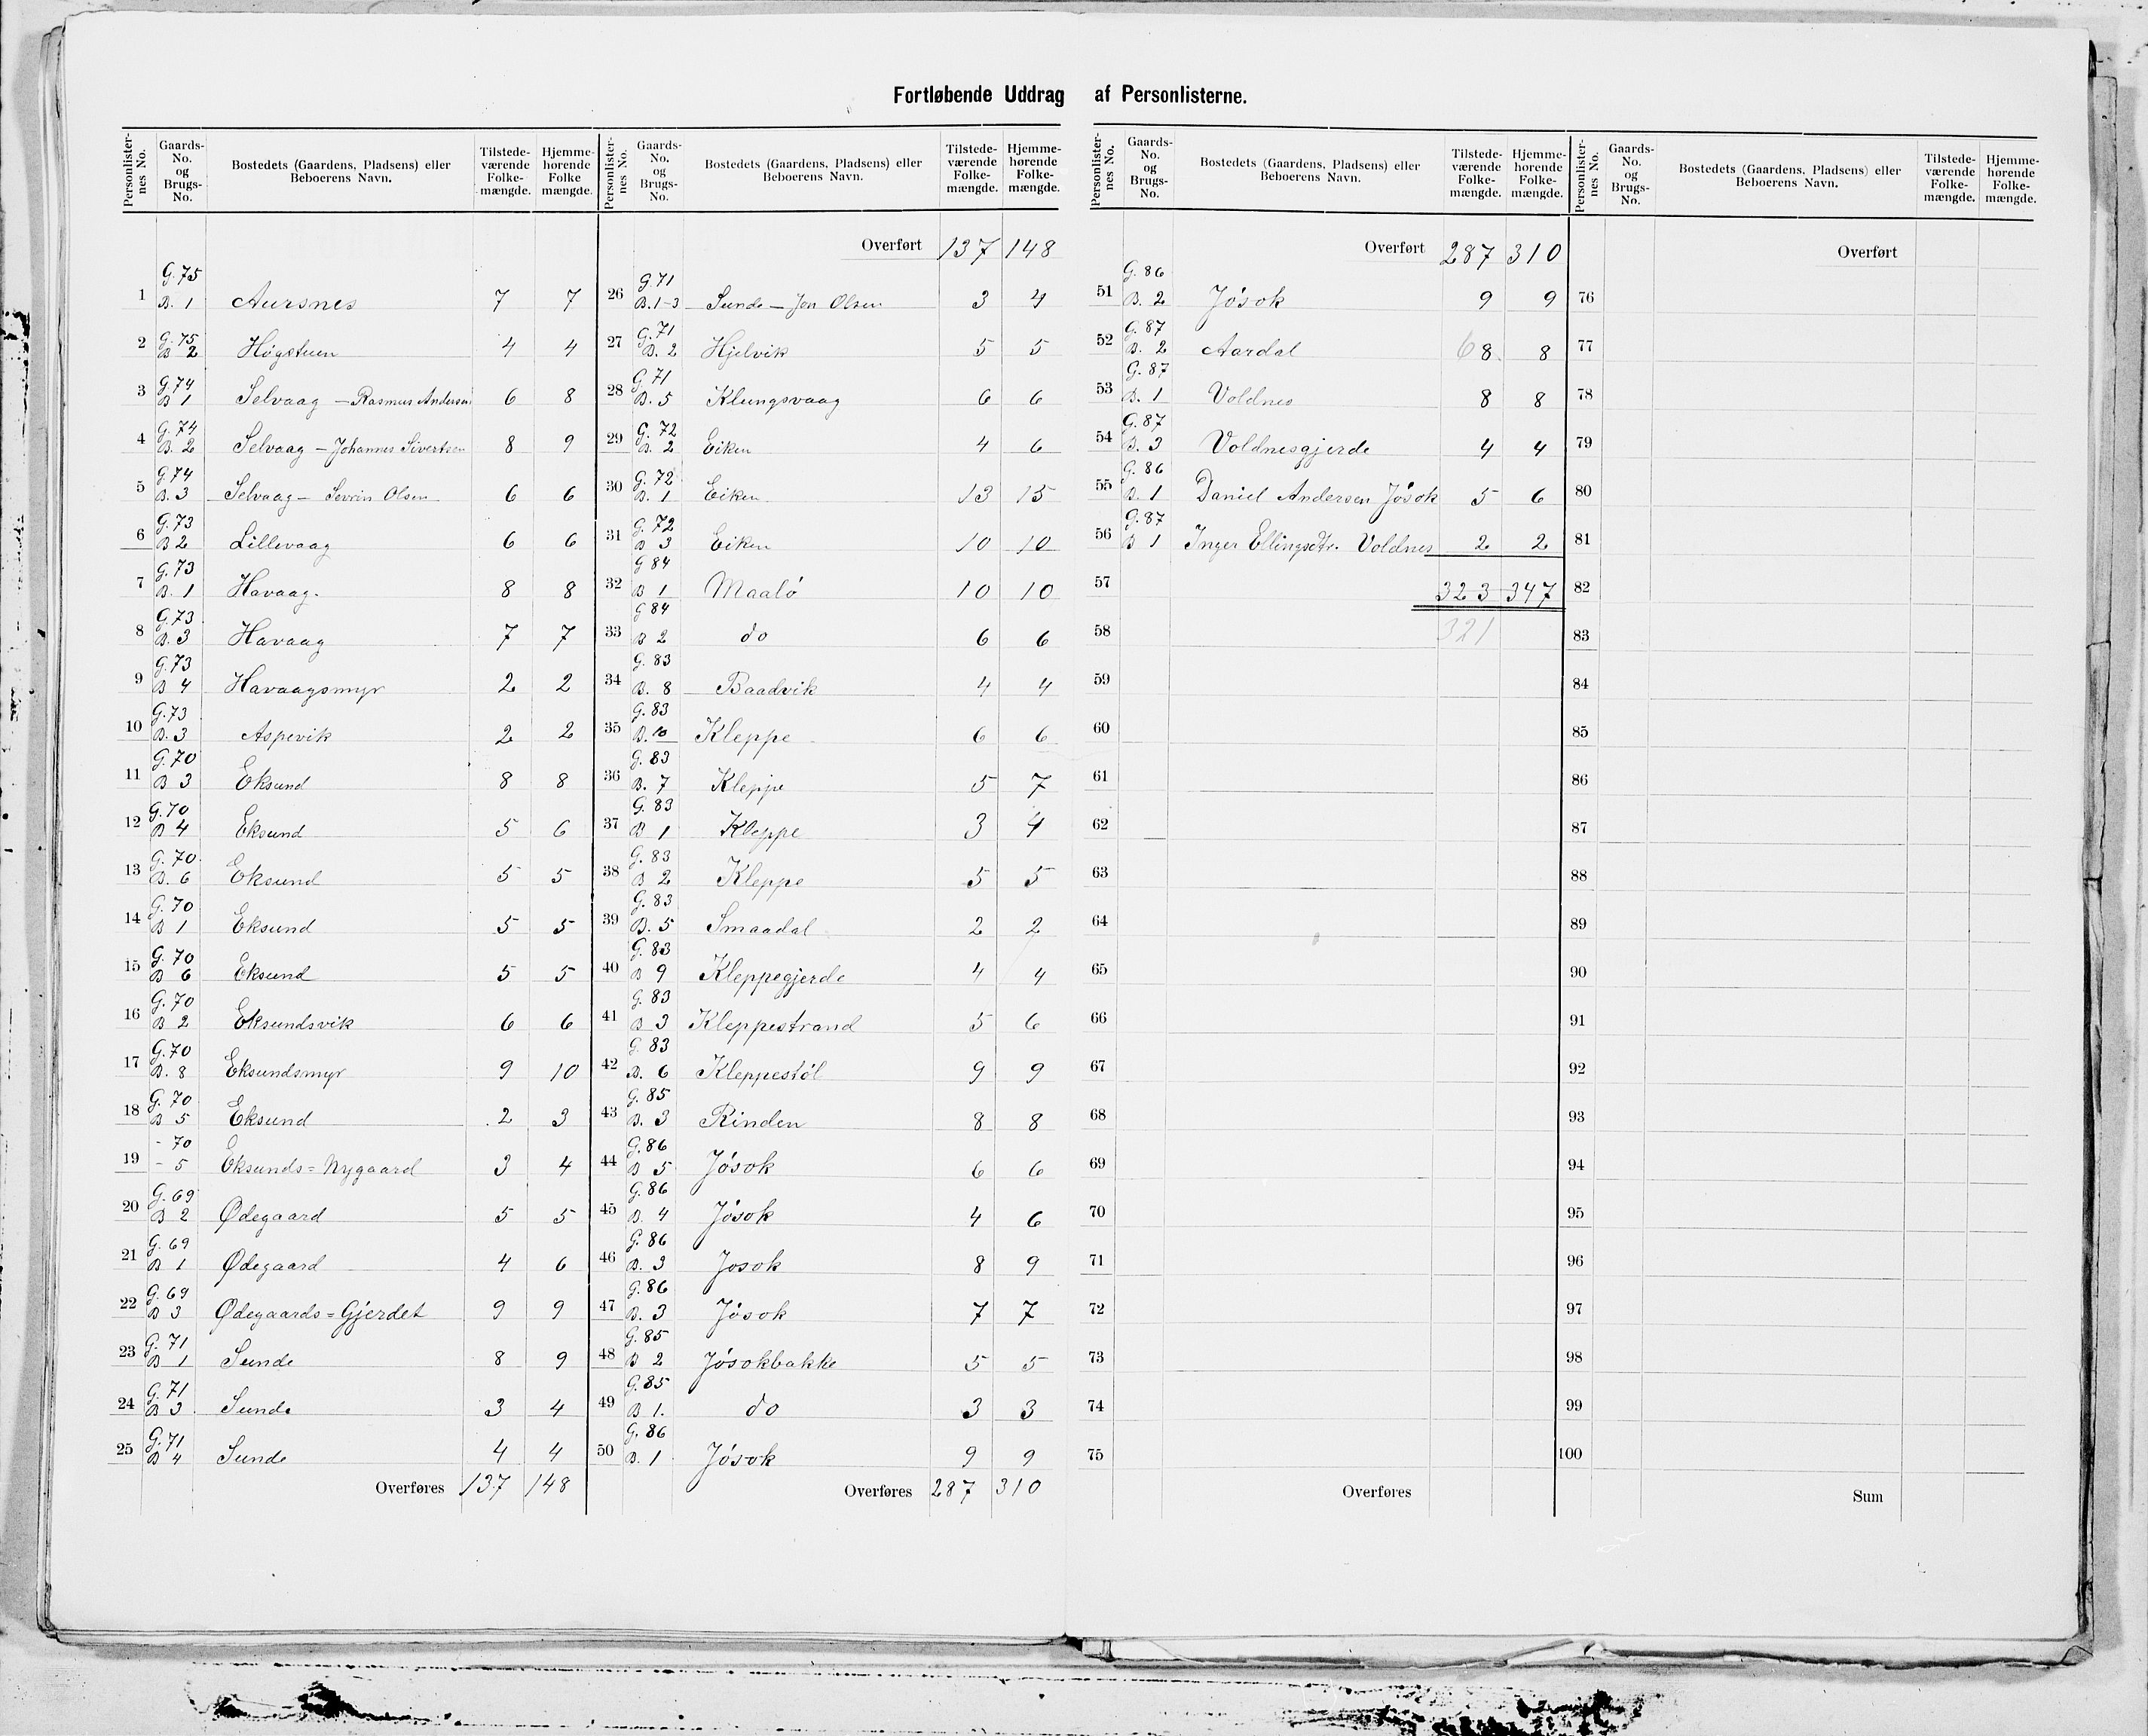 Fortløbende Uddrag af Personlisterne.
Personlisternes No. Gaards-No. og Brugs-No. Bostedets (Gaardens, Pladsens) eller Beboerens Navn. Tilstedeværende Folkemængde. Hjemmehørende Folke mængde.
1 G. 75 B. 1 Aursnes 7 7
2 G. 75 B 2 Høgstuen 4 4
3 G. 74 B 1 Selvaag - Rasmus Andersen 6 8
4 G. 74 B. 2 Selvaag - Johannes Sivertsen 8 9
5 G. 74 B. 3 Selvaag - Sevrin Olsen 6 6
6 G. 73 B 2 Lillevaag 6 6
7 G. 73 B. 1 Havaag. 8 8
8 G. 73 B. 3 Havaag 7 7
9 G. 73 B 4 Havaagsmyr 2 2
10 G. 73 B. 3 Aspevik 2 2
11 G. 70 B 3 Eksund 8 8
12 G. 70 B 4 Eksund 5 6
13 G. 70 B. 6 Eksund 5 5
14 G. 70 B 1 Eksund 5 5
15 G. 70 B 6 Eksund 5 5
16 G. 70 B 2 Eksundsvik 6 6
17 G. 70 B. 8 Eksundsmyr 9 10
18 G. 70 B 5 Eksund 2 3
19 - 70 - 5 Eksunds=Nygaard 3 4
20 G. 69 B 2 Ødegaard 5 5
21 G. 69 B 1 Ødegaard 4 6
22 G. 69 B 3 Ødegaards=Gjerdet 9 9
23 G. 71 B 1 Sunde 8 9
24 G. 71 B 3 Sunde 3 4
25 G. 71 B 4 Sunde 4 4
Overføres 137 148
Personlisternes No. Gaards-No. og Brugs-No. Bostedets (Gaardens, Pladsens) eller Beboerens Navn. Tilstedeværende Folkemængde. Hjemmehørende Folkemængde.
Overført 137 148
26 G. 71 B. 1-3 Sunde - Jon Olsen 3 4
27 G. 71 B. 2 Hjelvik 5 5
28 G. 71 B. 5 Klungsvaag 6 6
29 G. 72 B. 2 Eiken 4 6
30 G. 72 B. 1 Eiken 13 15
31 G. 72 B 3 Eiken 10 10
32 G 84 B 1 Maalø 10 10
33 G 84 B 2 do 6 6
34 G. 83 B. 8 Baadvik 4 4
35 G. 83 B. 10 Kleppe 6 6
36 G. 83 B. 7 Kleppe 5 7
37 G. 83 B 1 Kleppe 3 4
38 G. 83 B 2 Kleppe 5 5
39 G. 83 B. 5 Smaadal 2 2
40 G. 83 B 9 Kleppegjerde 4 4
41 G. 83 B 3 Kleppestrand 5 6
42 G. 83 B. 6 Kleppestøl 9 9
43 G. 85 B. 3 Rinden 8 8
44 G. 86 B 5 Jøsok 6 6
45 G. 86 B. 4 Jøsok 4 6
46 G. 86 B. 3 Josok 8 9
47 G. 86 B. 3 Jøsok 7 7
48 G. 85 B 2 Jøsokbakke 5 5
49 G. 85 B 1. do 3 3
50 G. 86 B. 1 Jøsok 9 9
Overføres 287 310
Personlisternes No. Gaards-No. og Brugs-No. Bostedets (Gaardens, Pladsens) eller Beboerens Navn. Tilstedeværende Folkemængde. Hjemmehørende Folkemængde.
Overført 287 310
51 G. 86 B. 2 Jøsok 9 9
52 G. 87 B. 2 Aardal 6 8 8
53 G. 87 B. 1 Voldnes 8 8
54 G. 87 B. 3 Voldnesgjerde 4 4
55 G. 86 B. 1 Daniel Andersen Jøsok 5 6
56 G. 87 B 1 Inger Ellingsdtr. Voldnes 2 2
57 323 347
58 321
59
60
61
62
63
64
65
66
67
68
69
70
71
72
73
74
75
Overføres
Personlisternes No. Gaards-No. og Brugs-No. Bostedets (Gaardens, Pladsens) eller Beboerens Navn. Tilstedeværende Folkemængde. Hjemmehørende Folkemængde.
Overført
76
77
78
79
80
81
82
83
84
85
86
87
88
89
90
91
92
93
94
95
96
97
98
99
100
Sum